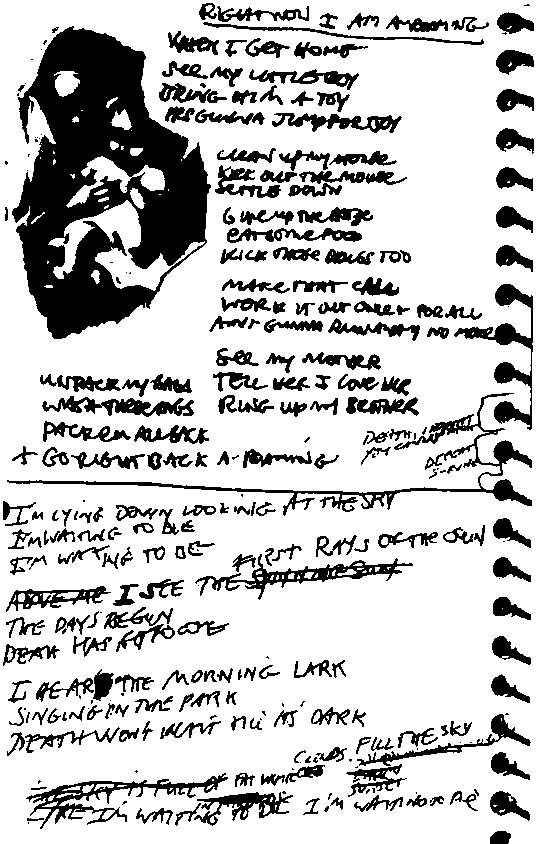 RIGHT NOW I AM AROAMING
WHEN I GET HOME
SEE MY LITTLE BOY
BRING HIM A TOY
HES GUNNA JUMP FOR JOY
CLEAN UP MY HOUSE
KICK OUT THE MOUSE
SETTLE DOWN
GIVE UP THE BOOZE
EAT SOME FOOD
KICK THOSE DRUGS TOO
MAKE THAT CALL
WORK IT OUT ONCE FOR ALL
AIN'T GUNNA RUNAWAY NO MORE
SEE MY MOTHER
TELL HER I LOVE HER
RING UP MY BROTHER
UNPACK MY BAGS
WASH THESE RAGS
PACK EM ALL BACK
+ GO RIGHT BACK A-ROAMING
DEATH
I'M LYING DOWN LOOKING AT THE SKY
I'M WAITING TO DIE
I'M WAITING TO DIE
ABOVE ME I SEE THE FIRST RAYS OF THE SUN
THE DAYS BEGUN
DEATH HAS TO COME
I HEAR THE MORNING LARK
SINGING IN THE PARK
DEATH WONT WAIT TILL ITS DARK
CLOUDS FILL THE SKY
THE SKY IS FULL OF
I'M WAITING TO DIE I'M WAITING TO DIE